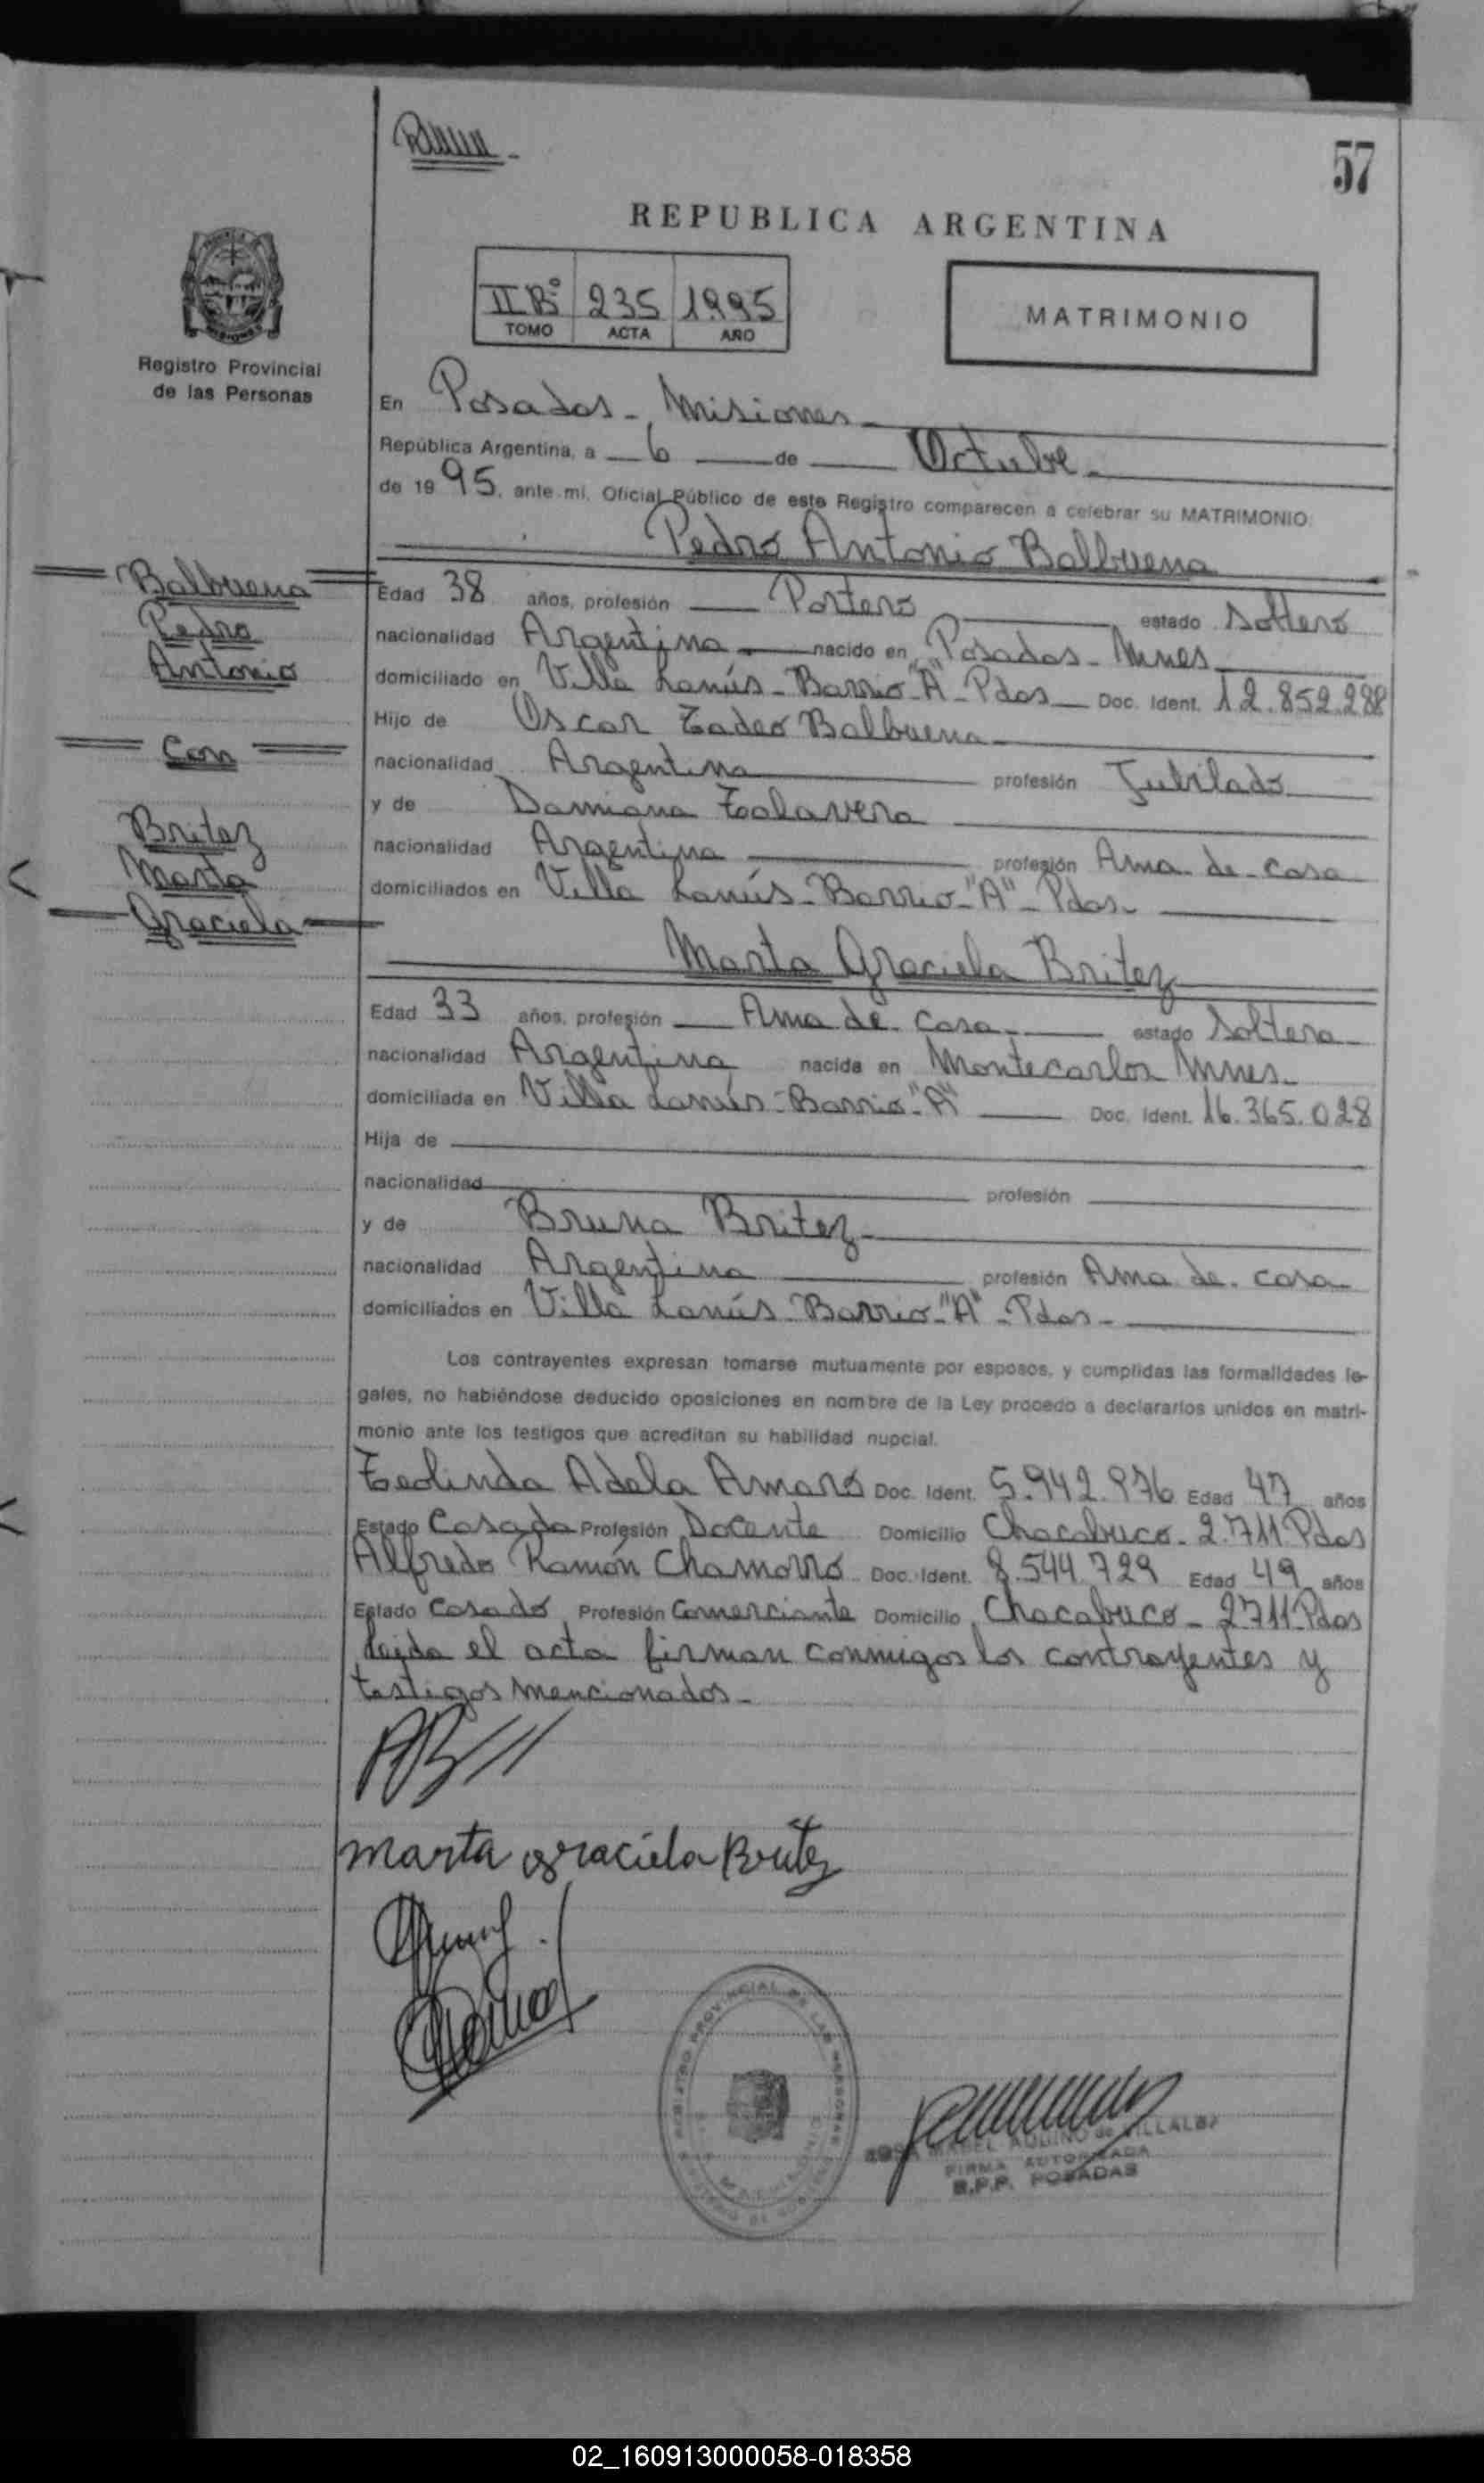 57
REPUBLICA ARGENTINA
IIBº 235 1995
TOMO ACTA AÑO
MATRIMONIO
Registro Provincial
de las Personas
En Posadas - Misiones
República Argentina, a 6 de Octubre
de 1995, ante mi, Oficial Público de este Registro comparecen a celebrar su MATRIMONIO:
Pedro Antonio Balbuena
Balbuena
Pedro
Antonio
Con
Britez
Marta
Graciela
Edad 38 años, profesión Portero estado Soltero
nacionalidad Argentina nacido en Posadas - Mnes
domiciliado en Villa Lanús - Barrio "A" - Pdas Doc. Ident. 12.852.288
Hijo de Oscar Tadeo Balbuena
nacionalidad Argentina profesión Jubilado
y de Damiana Talavera
nacionalidad Argentina profesión Ama de casa
domiciliados en Villa Lanús - Barrio - "A" - Pdas -
Marta Graciela Britez
Edad 33 años, profesión Ama de casa estado Soltera
nacionalidad Argentina nacida en Montecarlos Mnes -
domiciliada en Villa Lanús - Barrio - "A" Doc. Ident. 16.365.028
Hija de
nacionalidad profesión
y de Bruna Britez
nacionalidad Argentina profesión Ama de casa
domiciliados en Villa Lanús - Barrio - "A" - Pdas -
Los contrayentes expresan tomarse mutuamente por esposos, y cumplidas las formalidades le-
gales, no habiéndose deducido oposiciones en nombre de la Ley procedo a declararlos unidos en matri-
monio ante los testigos que acreditan su habilidad nupcial.
Teolinda Adela Amaro Doc. Ident. 5.942.976 Edad 47 años
Estado Casada Profesión Docente Domicilio Chacabuco - 2.711 Pdas
Alfredo Ramón Chamorro Doc. Ident. 8.544.729 Edad 49 años
Estado Casado Profesión Comerciante Domicilio Chacabuco - 2711 Pdas
Leida el acta firman conmigos los contrayentes y
testigos mencionados -
marta graciela Britez
MABEL AQUINO de VILLALBA
FIRMA AUTORIZADA
R.P.P. POSADAS
02_160913000058-018358